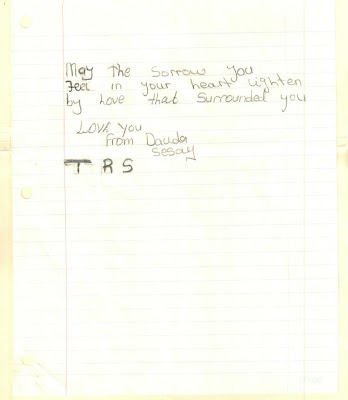 May The Sorrow you
Feel in your heart Lighten
by Love that Surrounded you
LOVE you
From Dauda
Sesay
T R S